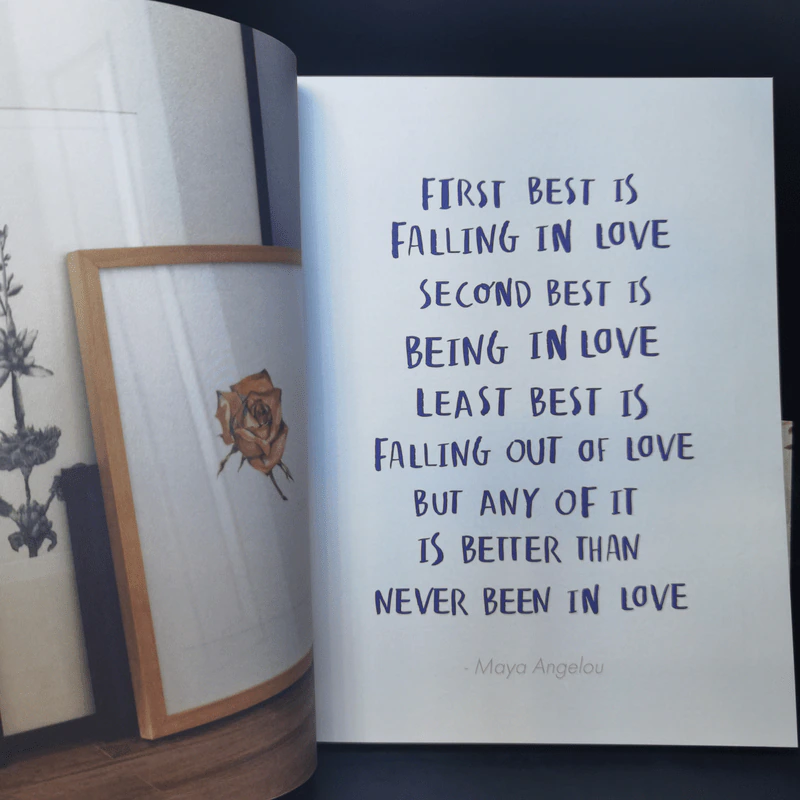 FIRST BEST IS
FALLING IN LOVE
SECOND BEST IS
BEING IN LOVE
LEAST BEST IS
FALLING OUT OF LOVE
BUT ANY OF IT
IS BETTER THAN
NEVER BEEN IN LOVE
- Maya Angelou